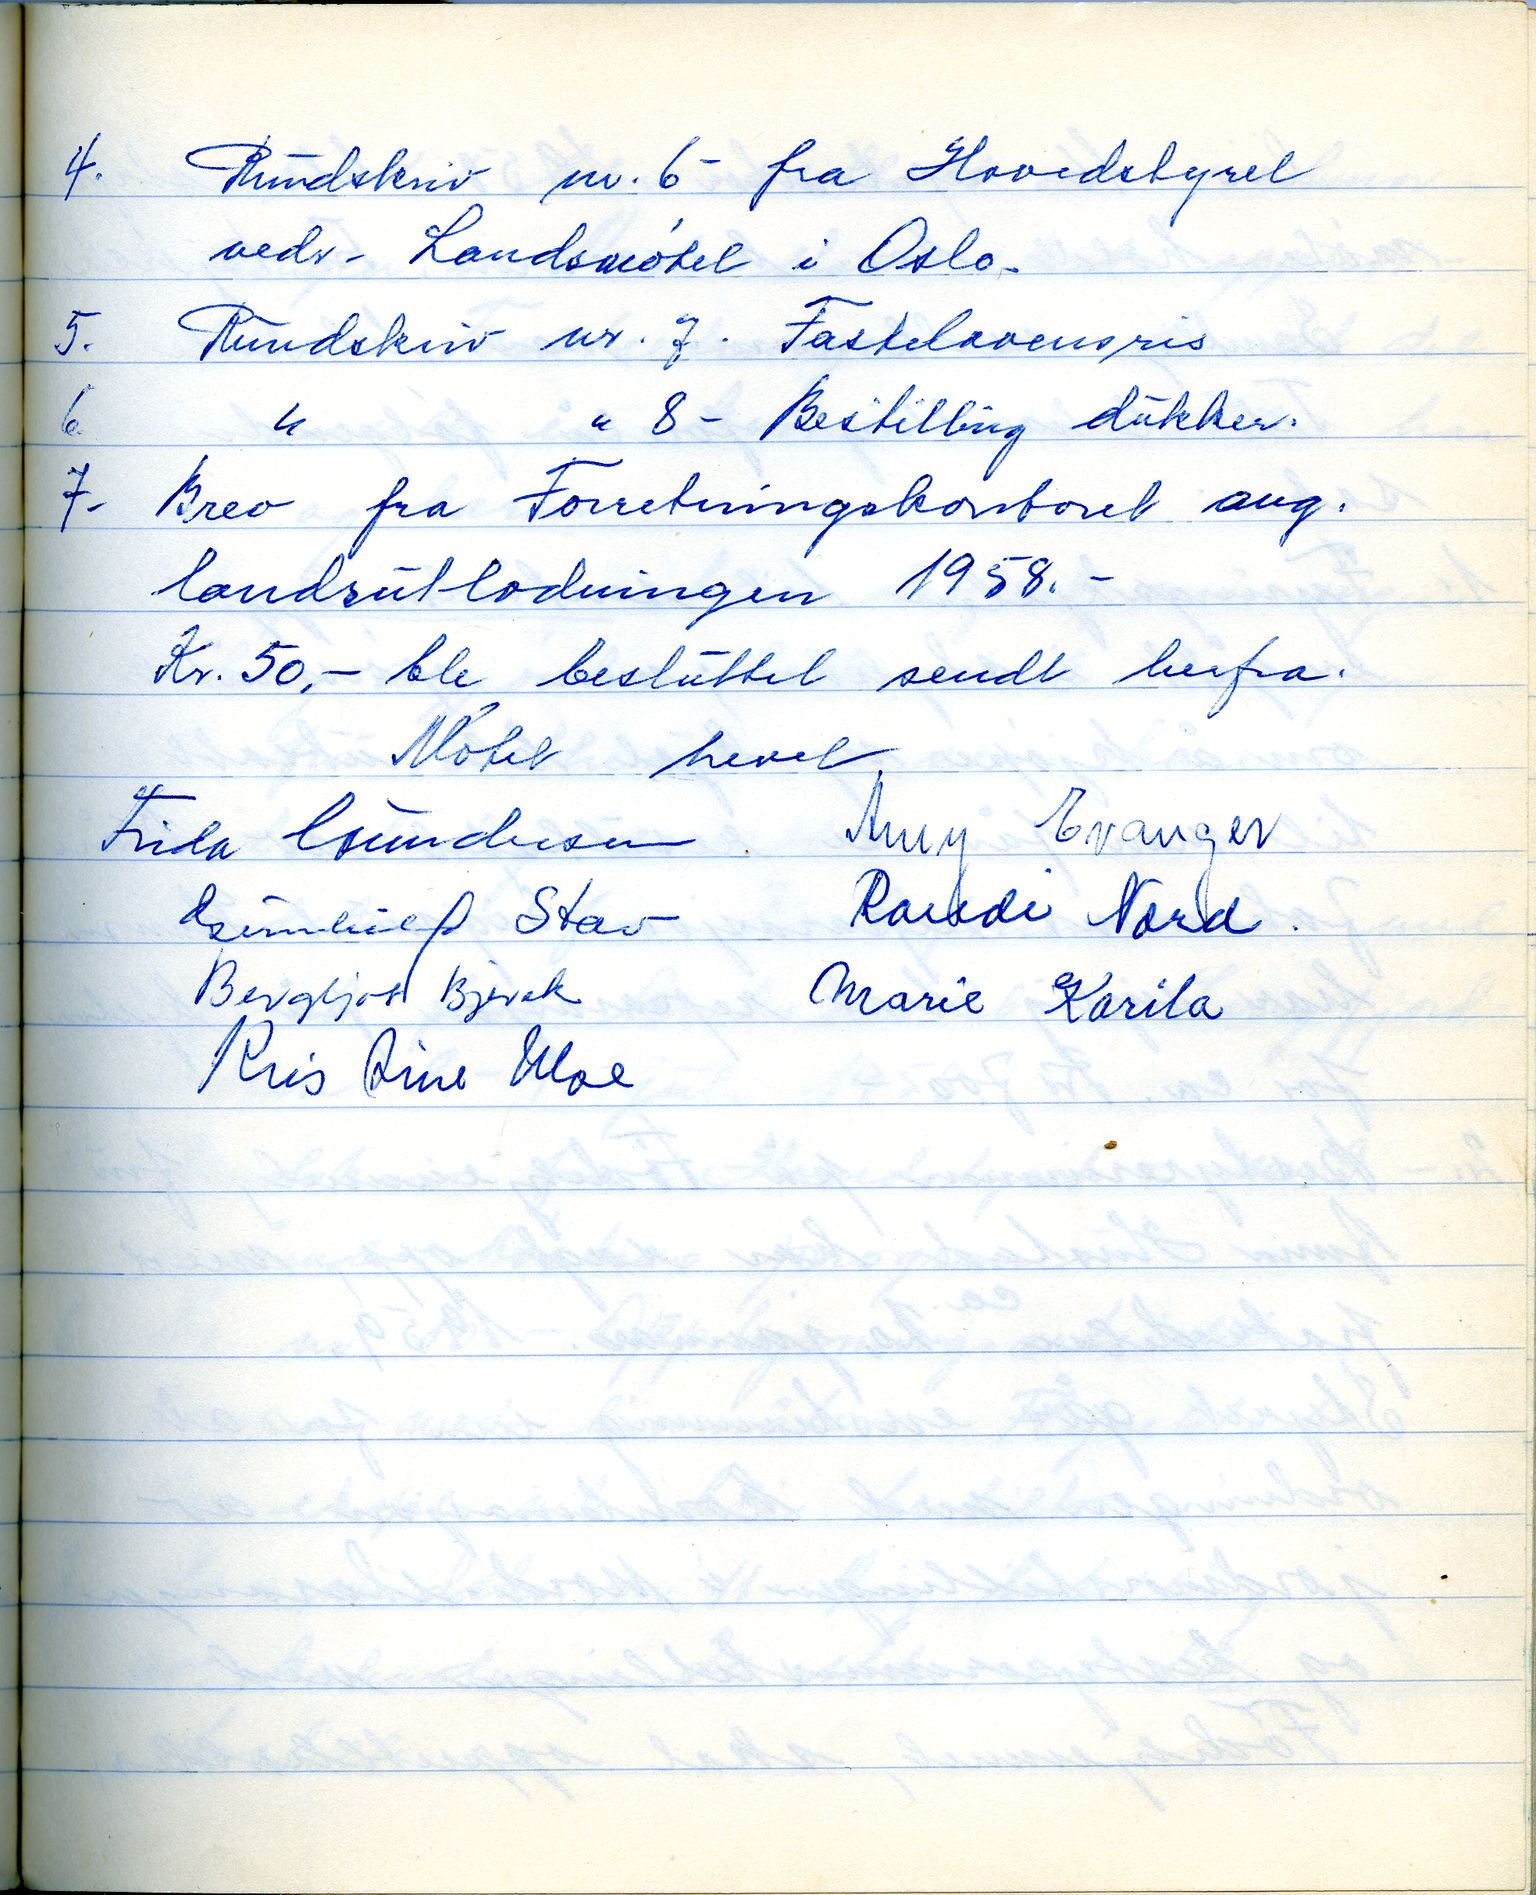 4. Rundskriv nr. 6 - fra Hovedstyret
vedr. Landsmötet i Oslo.
5. Rundskriv nr. 7. Fastelavensris
6 " " 8 - Bestilling dukker.
7. Brev fra Forretningskontoret ang.
landsutlodningen 1958. -
Kr. 50,- ble besluttet sendt herfra.
Mötet hevet.
Frida Gundersen Amy Evanger
Gunnhild Stav Randi Nord.
Bergljot Bjervk Marie Karila
Kris tine Moe